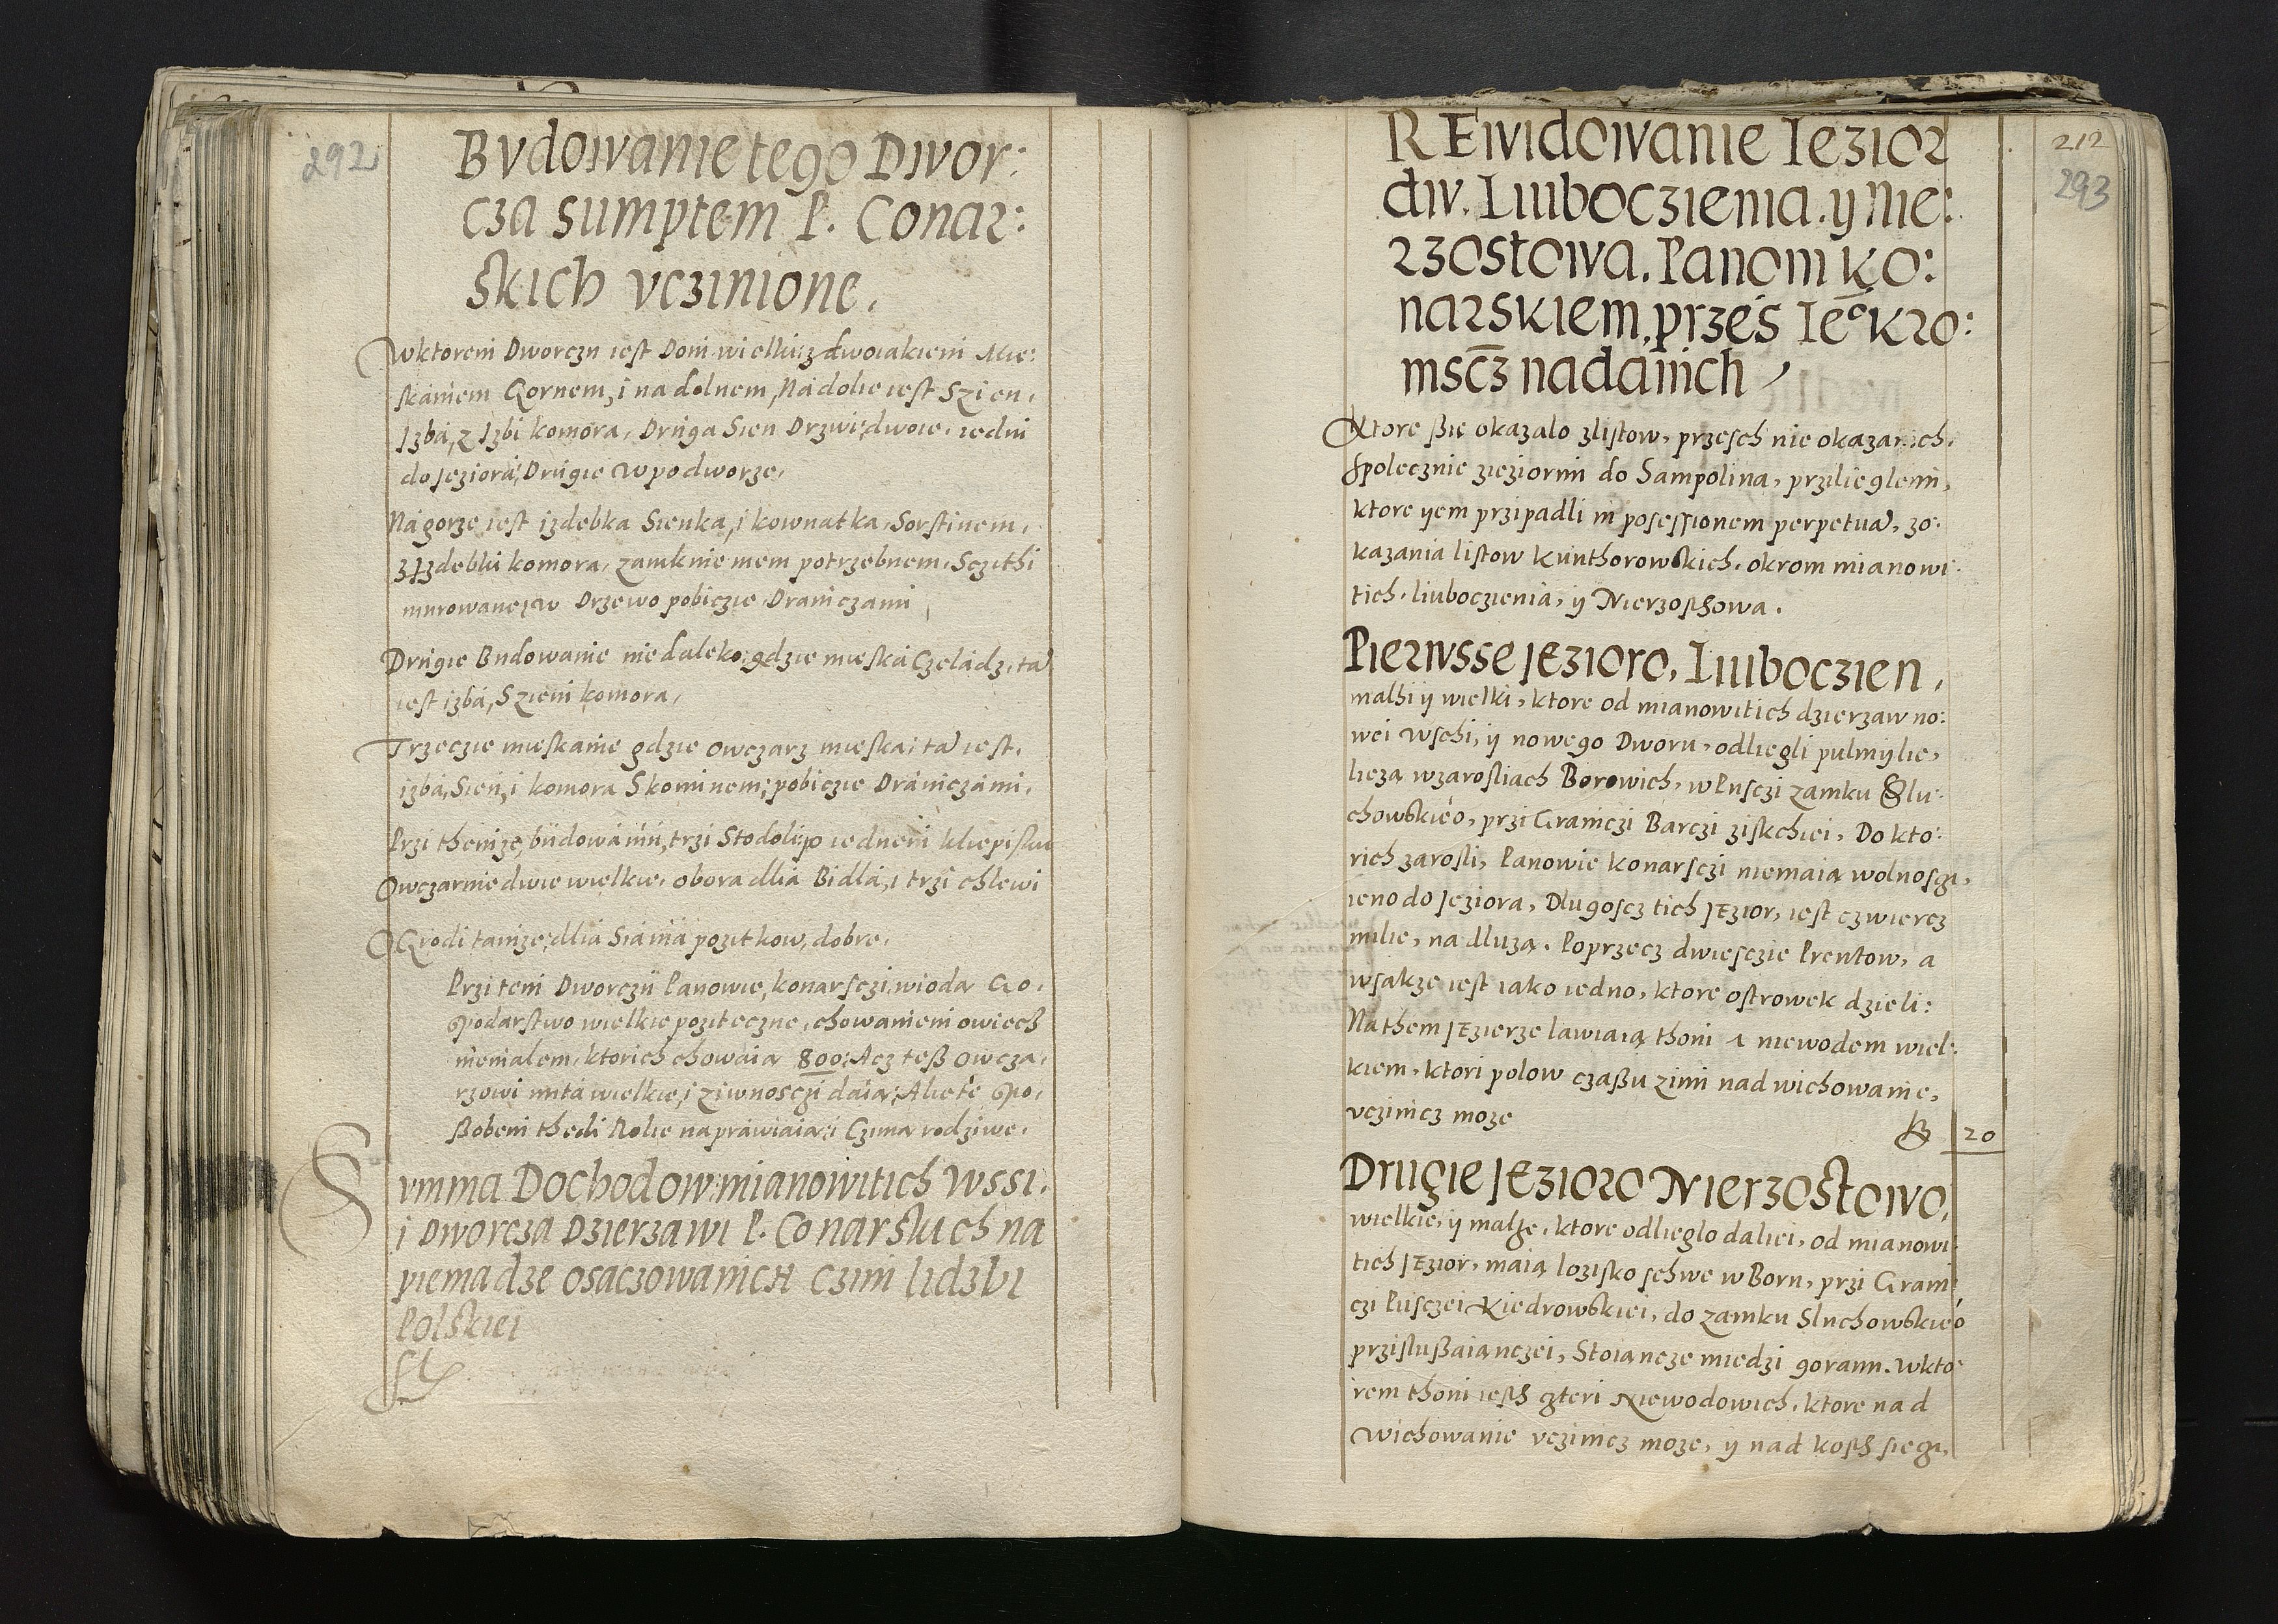 292
Budowanie tego Dwor:
cza sumptem P. Conar:
skich vczinione.
Wktorem Dworczu iest Dom wielki z dwoiakiem Mie:
skaniem Gornem, i na dolnem, Na dolie iest Szien,
Izba, z Izbi komora, Druga Sien Drzwi dwoie, iedni
do Jeziora, Drugie w podworze,
Na gorze iest izdebka Sienka, i kownatka, Sorstinem,
z Izdebki komora, zamkniemem potrzebnem, Sczithi
murowane w Drzewo pobiczie Draniczami
Drugie Budowanie niedaleko, gdzie mieska Czeladz, ta
iest izba, Szieni komora,
Trzeczie mieskanie gdzie owczarz mieska, ta iest,
izba, Sien, i komora Skominem, pobiczie Draniczami,
Przi themze budowaniu, trzi Stodoli po iednem kliepisku
Owczarnie dwie wielkie, obora dlia Bidla, i trzi chlewi
OGrodi tamze, dlia Siania pozitkow, dobre,
Przi tem Dworczu Panowie, konarsczi, wioda Go,
spodarstwo wielkie poziteczne, chowaniem owiecz
niemalem, ktorich chowaia 800: Acz tesz owcza,
rzowi mita wielkie, i ziwnosczi daia, Alie te spo,
szobem thedi Rolie naprawiaia, i Czinia rodziwe.
Summa Dochodow mianowitich Wssi,
i Dworcza Dzierzawi P. Conarskich na
pieniadze osaczowanich Czini lidzbi
Polskiei
fl
212
293
REwidowanie Iezior
dw. Liuboczienia. y Nie:
rzostowa. Panom Ko:
narskiem, przes Ieo Kro:
mscz nadanich
Ktore szie okazalo z listow, przesch nie okazanich,
spolecznie z ieziormi do Sampolina, przilieglemi,
ktore yem przipadli in posessionem perpetua, zo:
kazania listow Kunthorowskich, okrom mianowi:
tich, liuboczienia, y Nierzosthowa.
Pierwsse JEzioro, Liuboczien,
malhi y wielki, ktore od mianowitich dzierzaw no:
wei wschi, y nowego Dworu, odliegli pulmylie,
lieza w zarosliach Borowich, w Pusczi zamku Slu:
chowskieo, przi Graniczi Barczi ziskchiei, Do kto:
rich zarosli, Panowie Konarsczi niemaia wolnosczi,
ieno do Jeziora, Dlugoscz tich JEzior, iest czwiercz
milie, na dluza. Poprzecz dwiesczie Prentow, a
wsakze iest iako iedno, ktore ostrowek dzieli:
Na them JEzierze lawiaia thoni 1 niewodem wiel:
kiem, ktori polow czaszu zimi nad wichowanie,
vczinicz moze
20
Drugie JEzioro Nierzostowo,
wielkie, y malhe, ktore odlieglo daliei, od mianowi:
tich JEzior, maia lozisko schwe w Boru, przi Grani
czi Pusczei Kiedrowskiei, do zamku Sluchowskieo
przisluszaianczei, Stoiancze miedzi gorami. w kto:
rem thoni iesth czteri Niewodowich, ktore nad
wichowanie vczinicz moze, y nad kosth